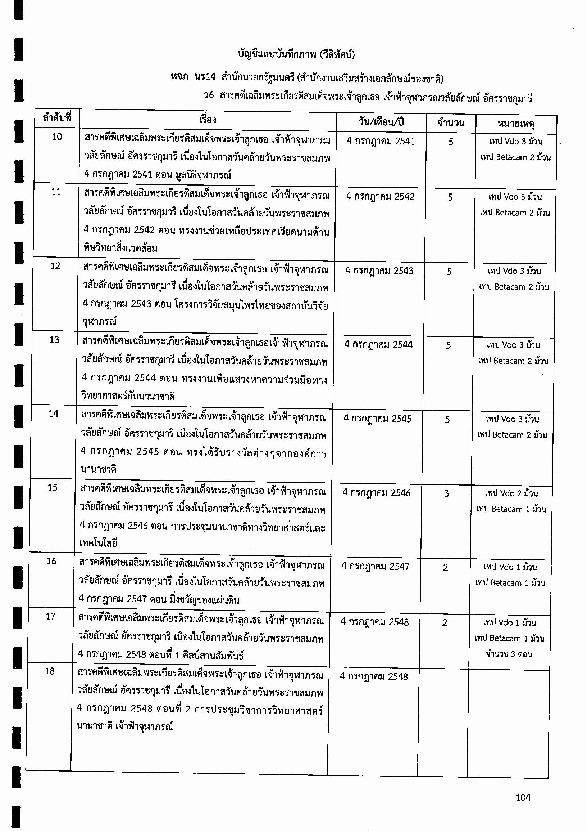 บัญชีแถบบันทึกภาพ (วีดิทัศน์)
หจภ นร14 สำนักนายกรัฐมนตรี (สำนักงานเสริมสร้างเอกลักษณ์ของชาติ)
ว6 สารคดีเฉลิมพระเกียรติสมเด็จพระเจ้าลูกเธอ เจ้าฟ้าจุฬาภรณวลัยลักษณ์ อัครราชกุมารี
ลำดับที่ เรื่อง วัน/เดือน/ปี จำนวน หมายเหตุ
10 สารคดีพิเศษเฉลิมพระเกียรติสมเด็จพระเจ้าลูกเธอ เจ้าฟ้าจุฬาภรณ 4 กรกฎาคม 2541 5 เทป Vdo 3 ม้วน
วลัยลักษณ์ อัครราชกุมารี เนื่องในโอกาสวันคล้ายวันพระราชสมภพ เทป Betacam 2 ม้วน
4 กรกฎาคม 2541 ตอน มูลนิธิจุฬาภรณ์
11 สารคดีพิเศษเฉลิมพระเกียรติสมเด็จพระเจ้าลูกเธอ เจ้าฟ้าจุฬาภรณ 4 กรกฎาคม 2542 5 เทป Vdo 3 ม้วน
วลัยลักษณ์ อัครราชกุมารี เนื่องในโอกาสวันคล้ายวันพระราชสมภพ เทป Betacam 2 ม้วน
4 กรกฎาคม 2542 ตอน ทรงงานช่วยเหลือประเทศเวียดนามด้าน
พิษวิทยาสิ่งแวดล้อม
12 สารคดีพิเศษเฉลิมพระเกียรติสมเด็จพระเจ้าลูกเธอ เจ้าฟ้าจุฬาภรณ 4 กรกฎาคม 2543 5 เทป Vdo 3 ม้วน
วลัยลักษณ์ อัครราชกุมารี เนื่องในโอกาสวันคล้ายวันพระราชสมภพ เทป Betacam 2 ม้วน
4 กรกฎาคม 2543 ตอน โครงการวิจัยสมุนไพรไทยของสถาบันวิจัย
จุฬาภรณ์
13 สารคดีพิเศษเฉลิมพระเกียรติสมเด็จพระเจ้าลูกเธอ เจ้าฟ้าจุฬาภรณ 4 กรกฎาคม 2544 5 เทป Vdo 3 ม้วน
วลัยลักษณ์ อัครราชกุมารี เนื่องในโอกาสวันคล้ายวันพระราชสมภพ เทป Betacam 2 ม้วน
4 กรกฎาคม 2544 ตอน ทรงงานเพื่อแสวงหาความร่วมมือทาง
วิทยาศาสตร์กับนานาชาติ
14 สารคดีพิเศษเฉลิมพระเกียรติสมเด็จพระเจ้าลูกเธอ เจ้าฟ้าจุฬาภรณ 4 กรกฎาคม 2545 5 เทป Vdo 3 ม้วน
วลัยลักษณ์ อัครราชกุมารี เนื่องในโอกาสวันคล้ายวันพระราชสมภพ เทป Betacam 2 ม้วน
4 กรกฎาคม 2545 ตอน ทรงได้รับรางวัลต่างๆจากองค์การ
นานาชาติ
15 สารคดีพิเศษเฉลิมพระเกียรติสมเด็จพระเจ้าลูกเธอ เจ้าฟ้าจุฬาภรณ 4 กรกฎาคม 2546 3 เทป Vdo 2 ม้วน
วลัยลักษณ์ อัครราชกุมารี เนื่องในโอกาสวันคล้ายวันพระราชสมภพ เทป Betacam 1 ม้วน
4 กรกฎาคม 2546 ตอน การประชุมนานาชาติทางวิทยาศาสตร์และ
เทคโนโลยี
16 สารคดีพิเศษเฉลิมพระเกียรติสมเด็จพระเจ้าลูกเธอ เจ้าฟ้าจุฬาภรณ 4 กรกฎาคม 2547 2 เทป Vdo 1 ม้วน
วลัยลักษณ์ อัครราชกุมารี เนื่องในโอกาสวันคล้ายวันพระราชสมภพ เทป Betacam 1 ม้วน
4 กรกฎาคม 2547 ตอน มิ่งขวัญของแผ่นดิน
17 สารคดีพิเศษเฉลิมพระเกียรติสมเด็จพระเจ้าลูกเธอ เจ้าฟ้าจุฬาภรณ 4 กรกฎาคม 2548 2 เทป Vdo 1 ม้วน
วลัยลักษณ์ อัครราชกุมารี เนื่องในโอกาสวันคล้ายวันพระราชสมภพ เทป Betacam 1 ม้วน
4 กรกฎาคม 2548 ตอนที่ 1 ศิลป์สานสัมพันธ์ จำนวน 3 ตอน
18 สารคดีพิเศษเฉลิมพระเกียรติสมเด็จพระเจ้าลูกเธอ เจ้าฟ้าจุฬาภรณ 4 กรกฎาคม 2548
วลัยลักษณ์ อัครราชกุมารี เนื่องในโอกาสวันคล้ายวันพระราชสมภพ
4 กรกฎาคม 2548 ตอนที่ 2 การประชุมวิชาการวิทยาศาสตร์
นานาชาติ เจ้าฟ้าจุฬาภรณ์
104